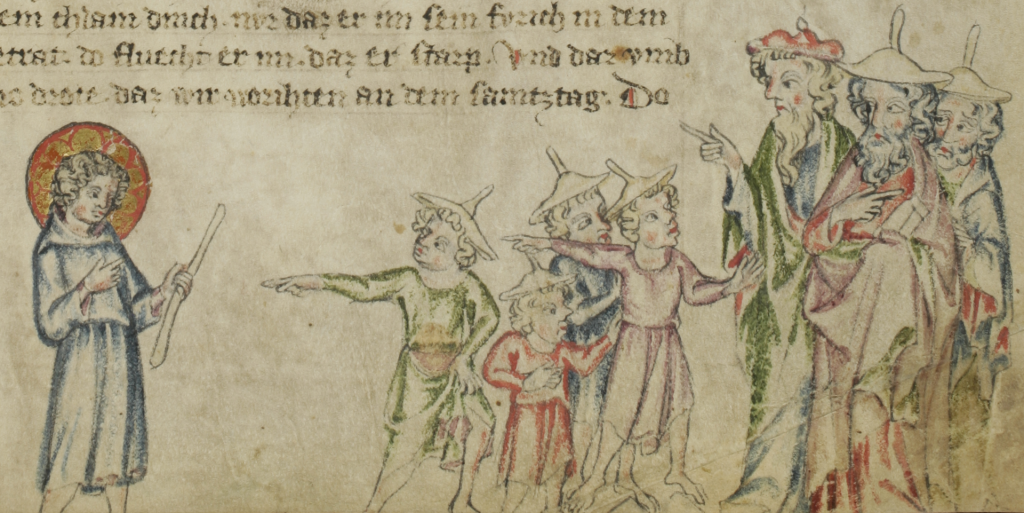 em chlam druch. we daz er im sein fvrich in dem
trat. do fluecht er im. daz er starp. Vnd dar vmb
drote. daz wir worihten an dem samtztag. Do